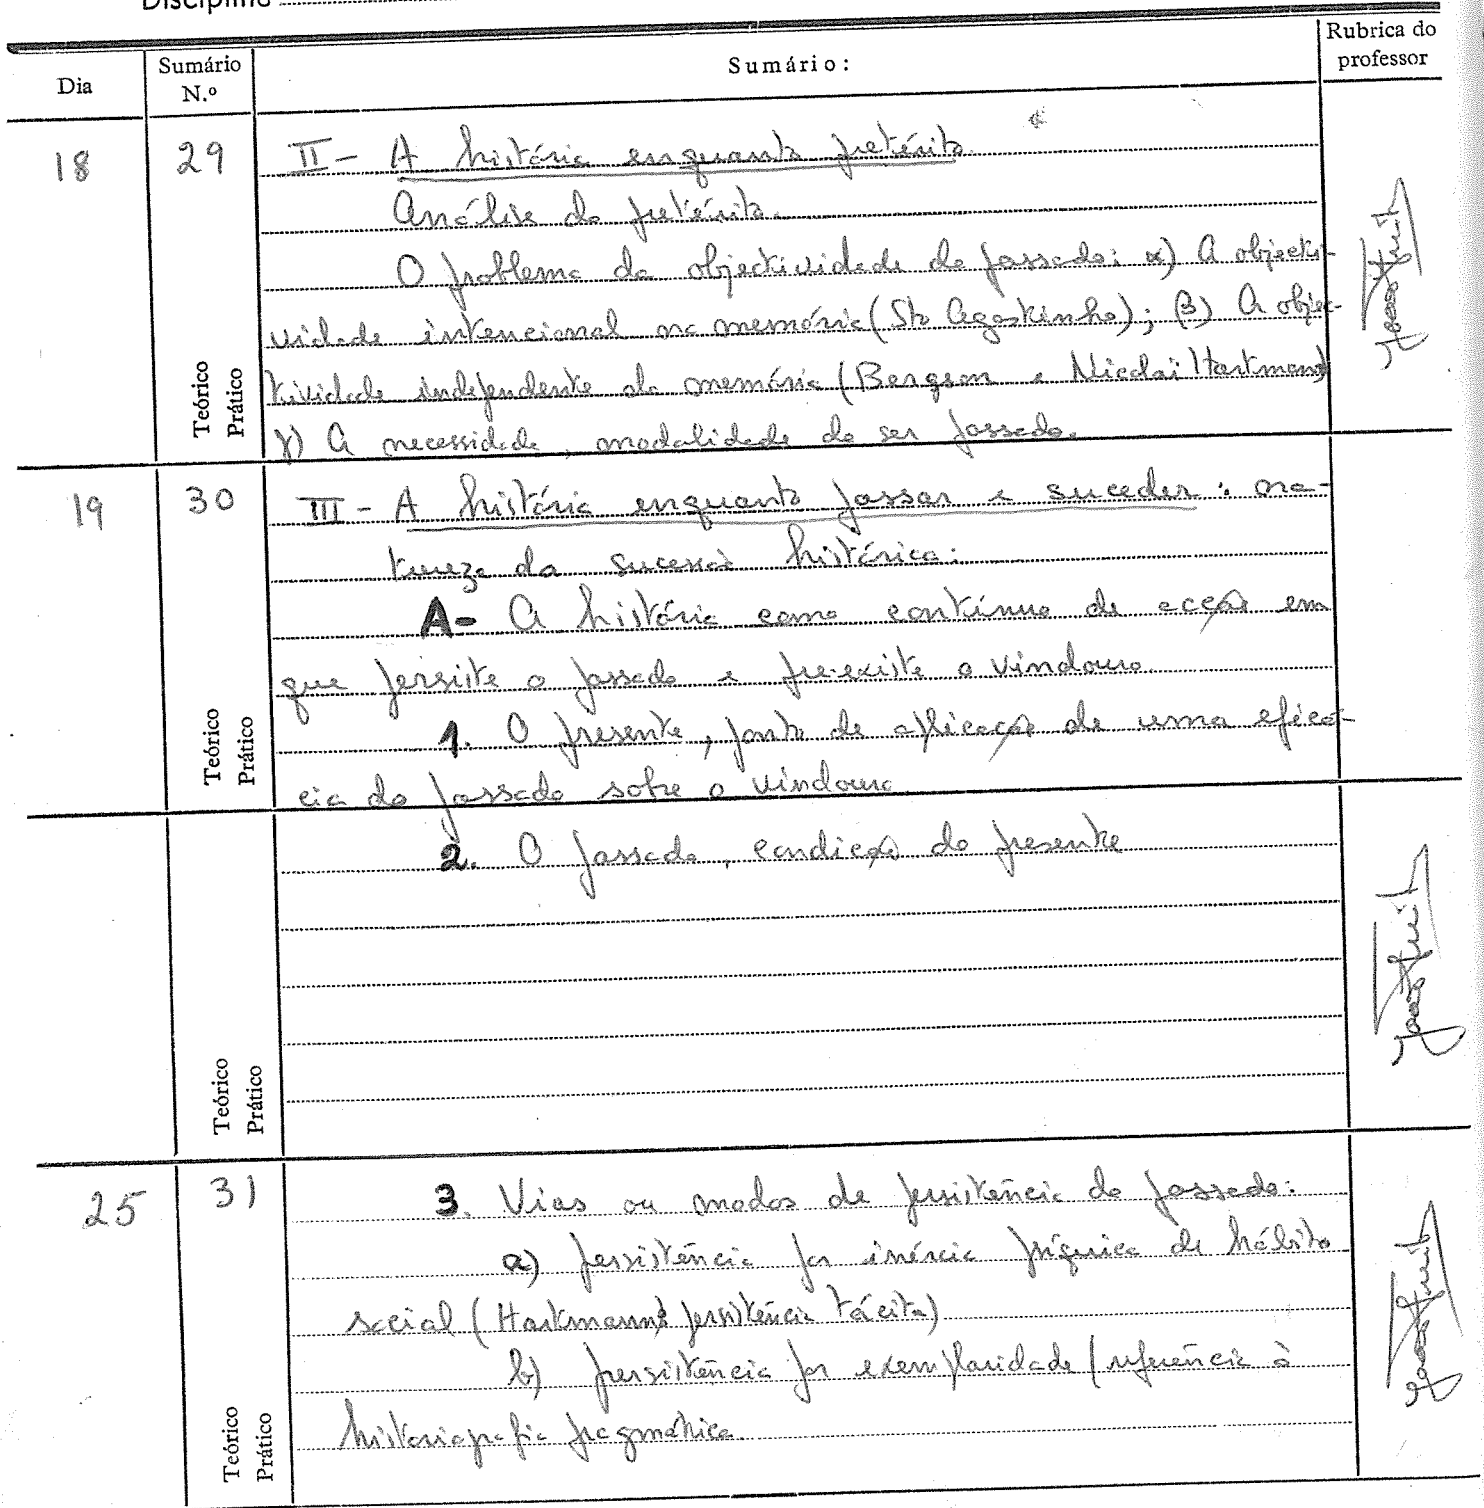 Disciplina
Dia
Sumário N.º
Sumário:
Rubrica do professor
18
29
II - A história enquanto pretérito.
Análise do pretérito.
O problema da objectividade do passado: α) A objecti-
vidade intencional na memória (Sto Agostinho); β) A objec-
tividade independente da memória (Bergson e Nicolai Hartmann)
γ) A necessidade, modalidade do ser passado.
Teórico
Prático
19
30
III - A história enquanto passar e suceder: na-
tureza da sucessão histórica:
A- A história como contínuo de acção em
que persiste o passado e pre-existe o vindouro.
1. O presente, ponto de aplicação de uma eficá-
cia do passado sobre o vindouro
Teórico
Prático
2. O passado, condição do presente
Teórico
Prático
25
31
3. Vias ou modos de persistência do passado:
a) persistência por inércia psíquica de hábito
social (Hartmann: persistência tácita)
b) persistência por exemplaridade (referência à
historiografia pragmática.
Teórico
Prático